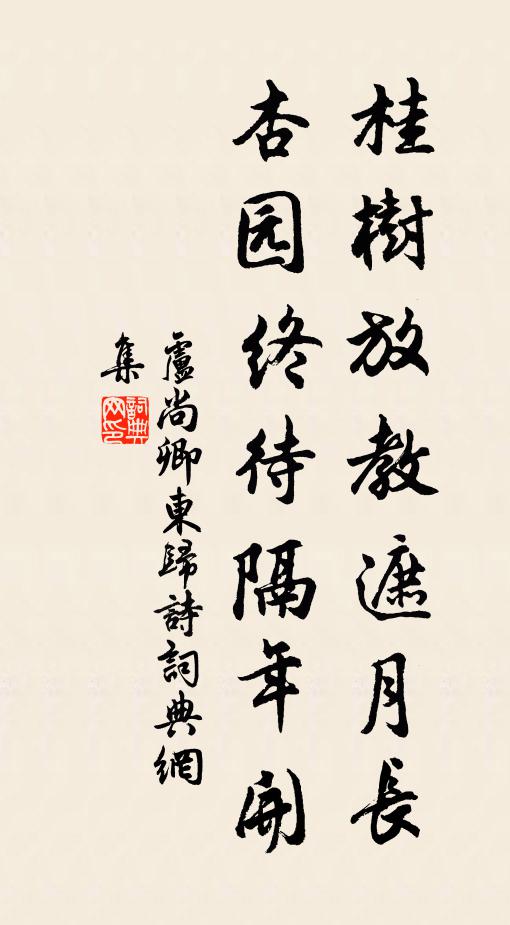 桂樹放教遮月長
杏园终待隔年開
盧尚卿東歸詩詞典網
集
詞典网印